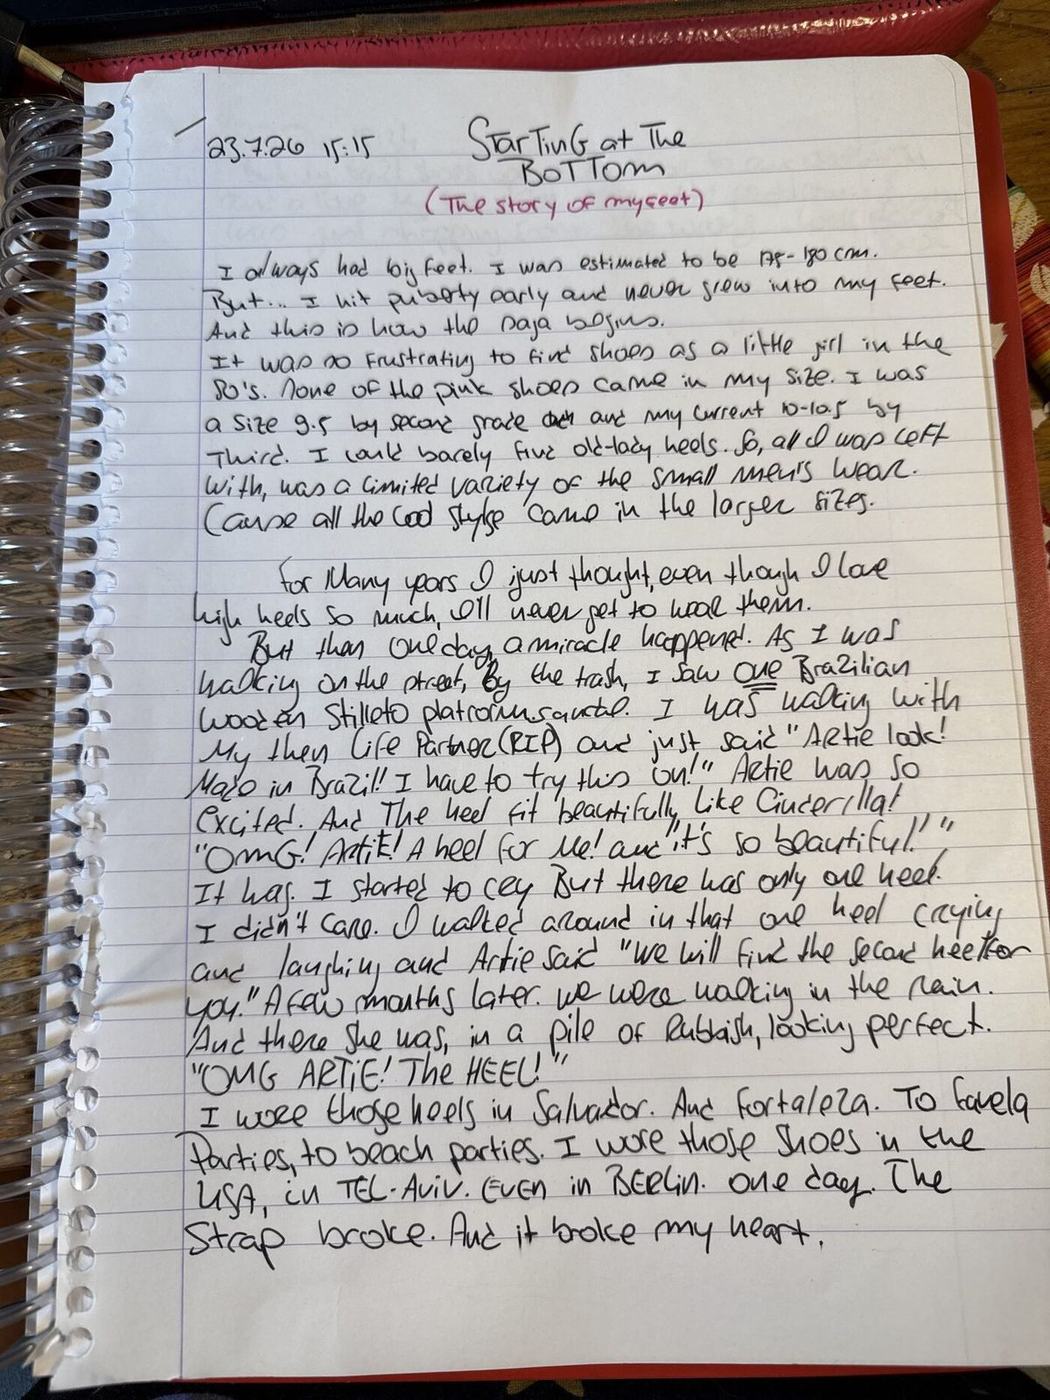 23.7.26 15:15
Starting at The
Bottom
(The story of my feet)
I always had big feet. I was estimated to be 175-180 cm.
But... I hit puberty early and never grew into my feet.
And this is how the saga begins.
It was so frustrating to find shoes as a little girl in the
80's. None of the pink shoes came in my size. I was
a size 9.5 by second grade and my current 10-10.5 by
Third. I could barely find old-lady heels. So, all I was left
with, was a limited variety of the small men's wear.
Cause all the cool style came in the larger sizes.
For Many years I just thought, even though I love
high heels so much, I'll never get to wear them.
But then one day, a miracle happened. As I was
walking on the street, By the trash, I saw one Brazilian
wooden Stilleto platform sandal. I was walking with
My then Life Partner (RIP) and just said "Artie look!
Made in Brazil! I have to try this on!" Artie was so
excited. And The heel fit beautifully, Like Cinderilla!
"OMG! Artie! A heel for Me! and it's so beautiful!"
It was. I started to cry But there was only one heel.
I didn't care. I walked around in that one heel crying
and laughing and Artie said "We will find the second heel for
you." A few months later. we were walking in the rain.
And there she was, in a pile of Rubbish, looking perfect.
"OMG ARTiE! The HEEL!"
I wore those heels in Salvador. And Fortaleza. To favela
Parties, to beach parties. I wore those shoes in the
USA, in TEL-Aviv. EVEN in BERLin. one day. The
Strap broke. And it broke my heart.